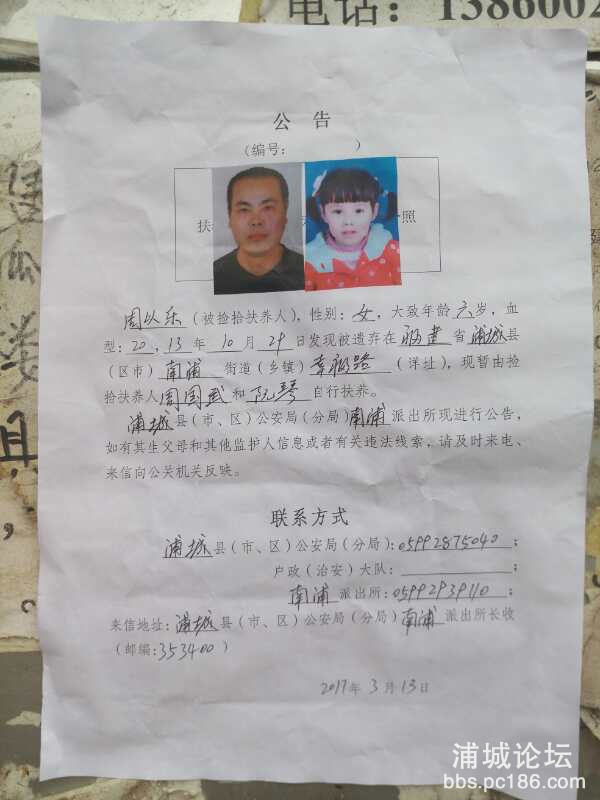 电话：1386002
公 告
（编号： ）
扶
照
周以乐（被捡拾扶养人），性别：女，大致年龄六岁，血
型：20，13年10月29日发现被遗弃在福建省浦城县
（区市）南浦 街道（乡镇）幸福路 （详址），现暂由捡
拾扶养人周国武和阮琴自行扶养。
浦城县（市、区）公安局（分局）南浦派出所现进行公告，
如有其生父母和其他监护人信息或者有关违法线索，请及时来电、
来信向公关机关反映。
联系方式
浦城县（市、区）公安局（分局）：05992875040；
户政（治安）大队： ；
南浦派出所：05992939110；
来信地址：浦城县（市、区）公安局（分局）南浦派出所长收
（邮编：353400）
2017年3月13日
浦城论坛
bbs.pc186.com